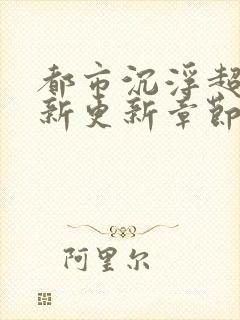 都市沉浮超
新更新章节
阿里尔